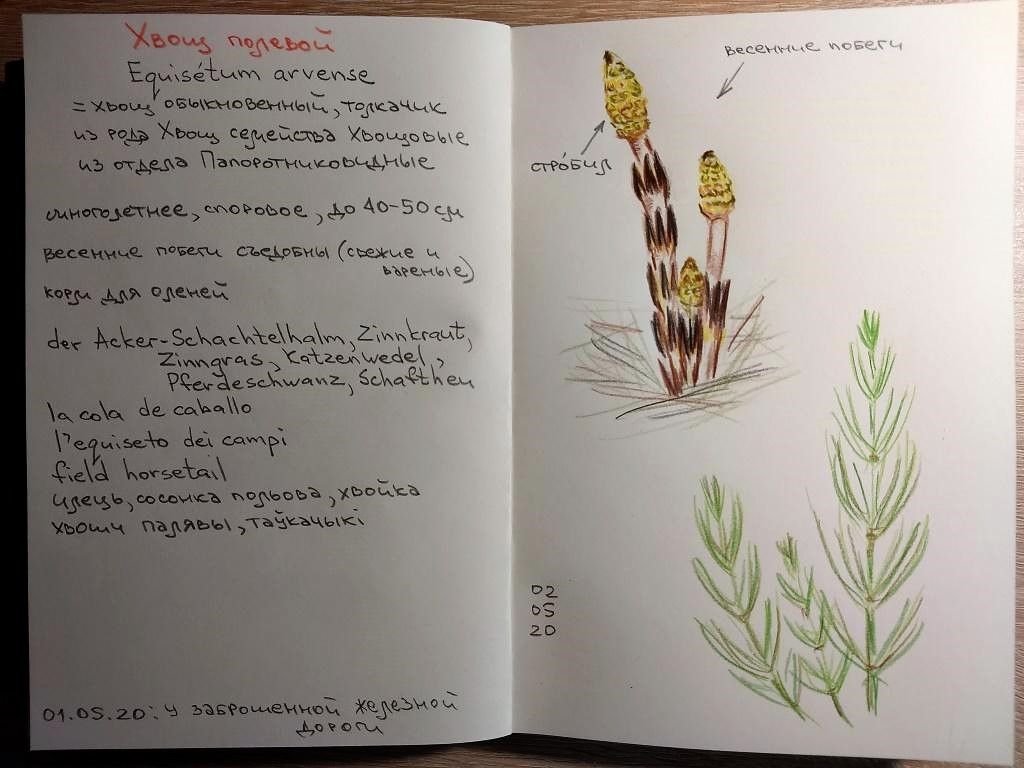 Хвощ полевой
Equisétum arvense
= хвощ обыкновенный, толкачик
из рода Хвощ семейства Хвощовые
из отдела Папоротниковидные
многолетнее, споровое, до 40-50 см
весенние побеги съедобны (свежие и
вареные)
корм для оленей
der Acker-Schachtelhalm, Zinnkraut,
Zinngras, Katzenwedel,
Pferdeschwanz, Schaftheu
la cola de caballo
l'equiseto dei campi
field horsetail
илець, сосонка польова, хвойка
хвошч палявы, таўкачыкі
01.05.20: у заброшенной железной
дороги
весенние побеги
стро́бил
02
05
20